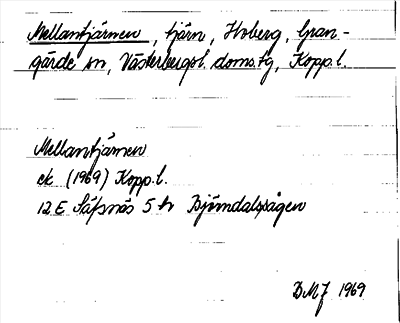 Mellantjärnen, tjärn, Hoberg, Gran-
gärde sn, Västerbergsl. doms.fg, Kopp.l.
Mellantjärnen
ek (1969) Kopp.l.
12 E Säfsnäs 5 h Björndalssågen
BMJ 1969